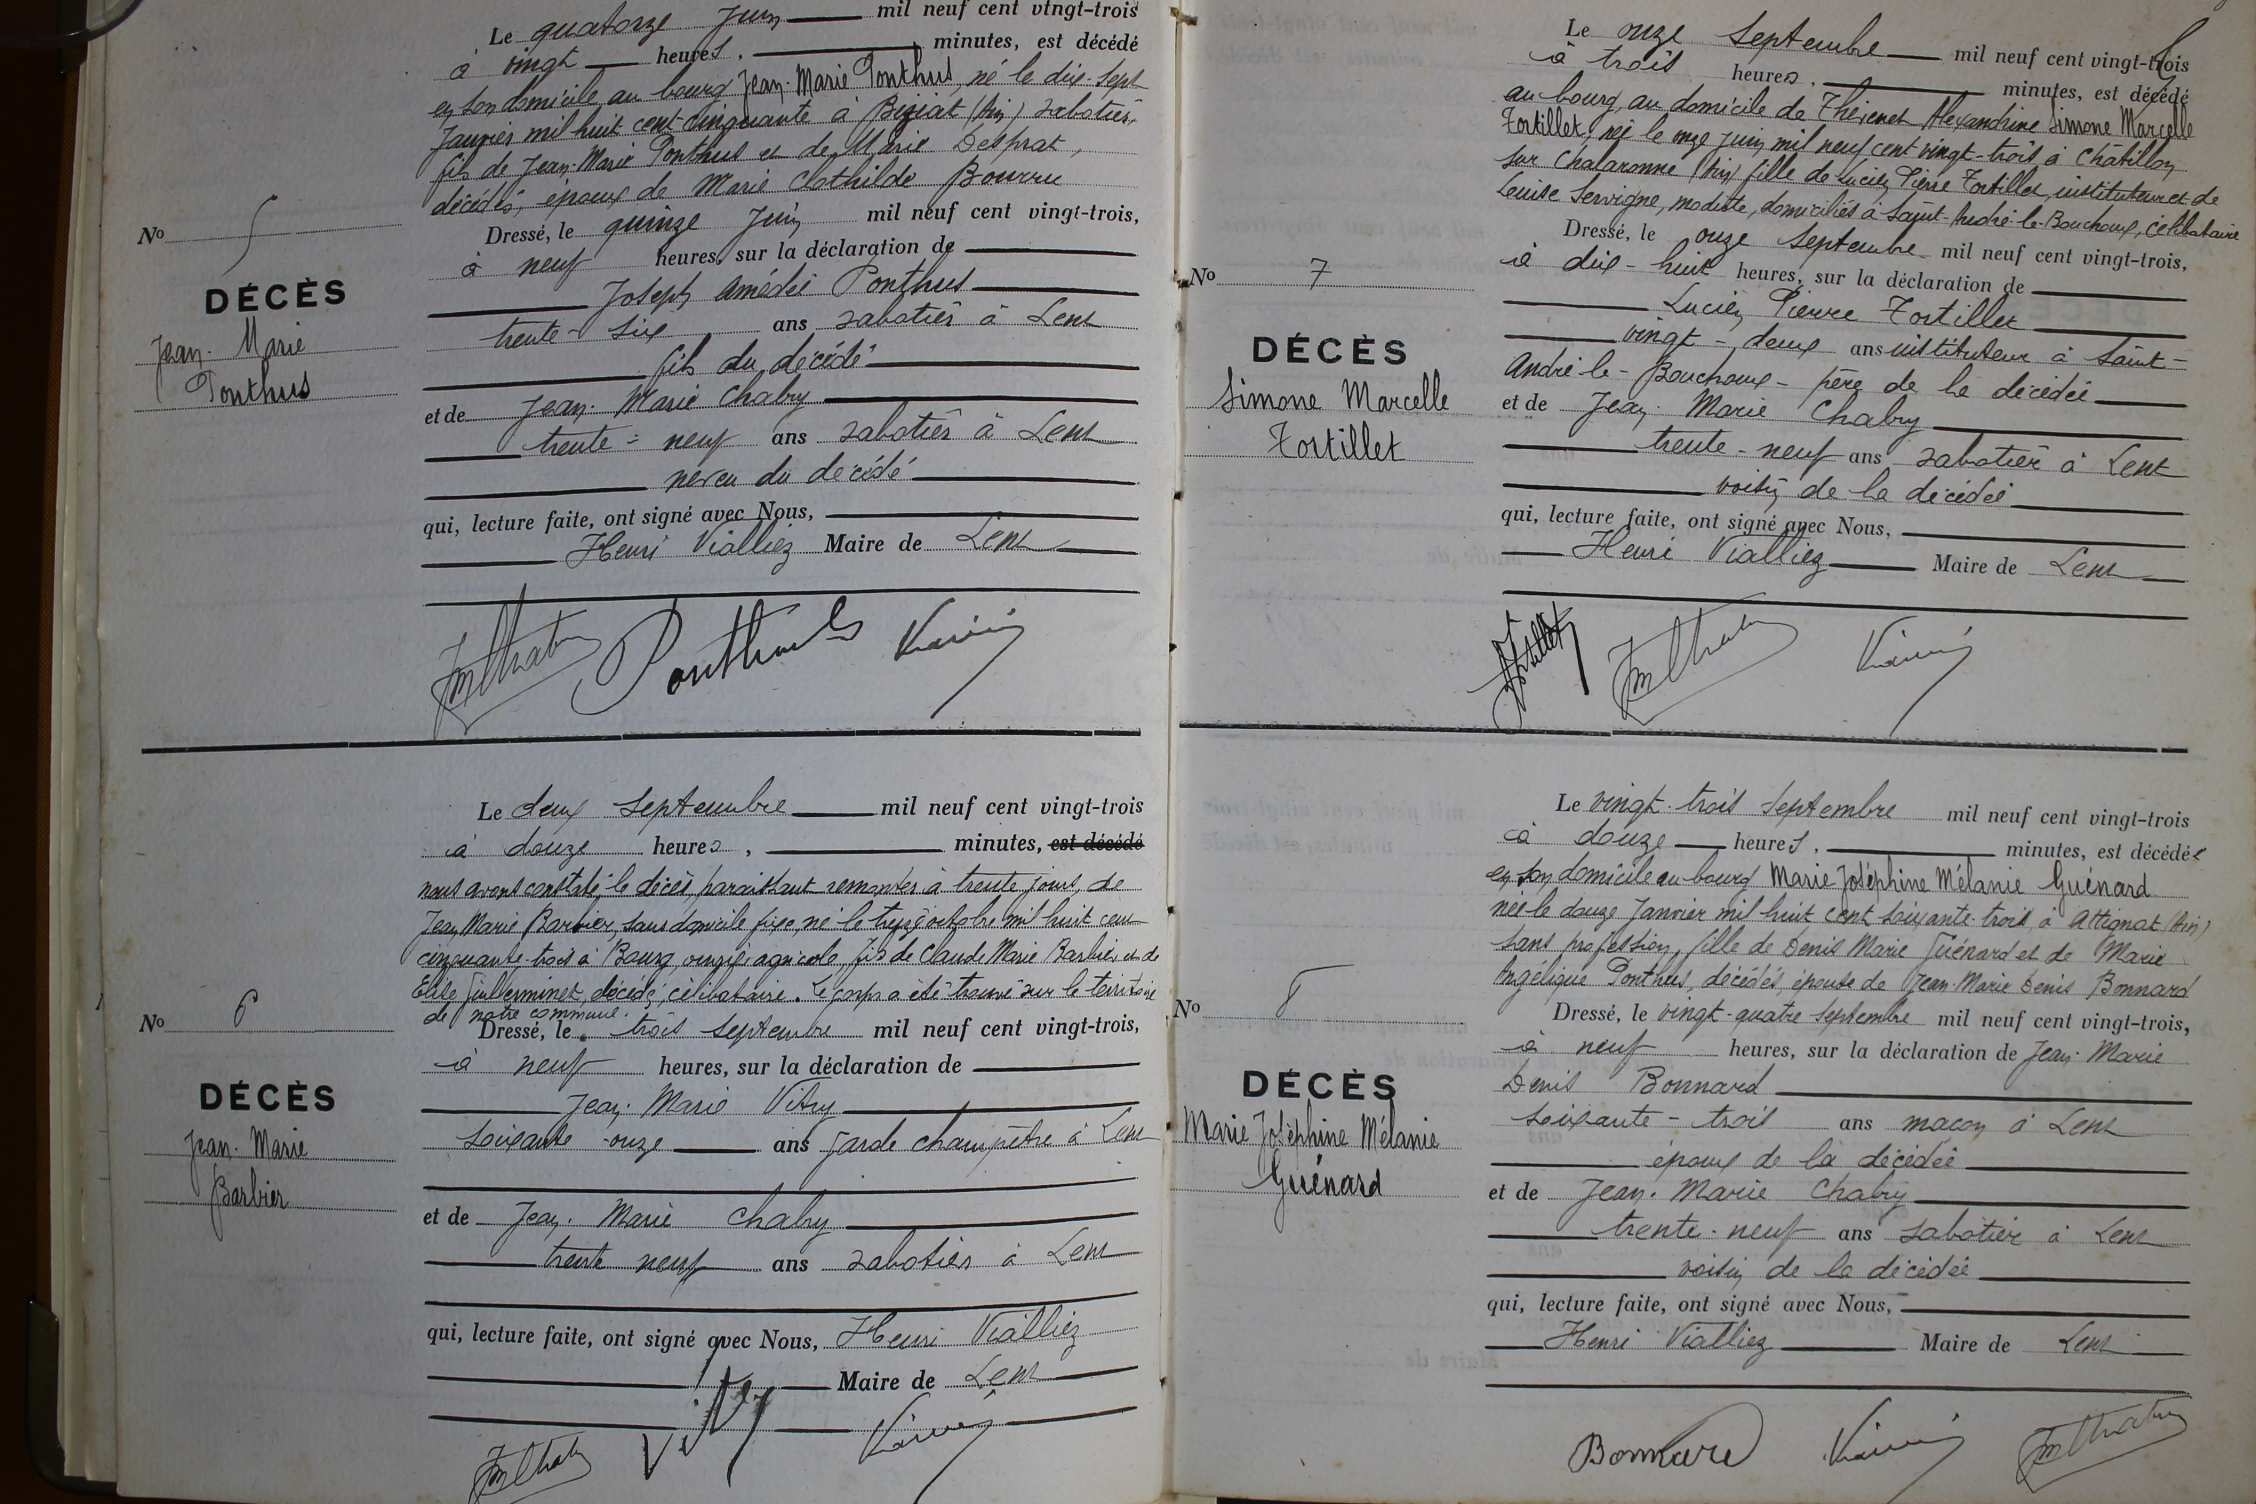 Le quatorze Juin mil neuf cent vingt-trois
à vingt heures, minutes, est décédé
en son domicile au bourg Jean-Marie Ponthus, né le dix-sept
Janvier mil huit cent cinquante à Biziat (Ain) sabotier,
fils de Jean-Marie Ponthus et de Marie Desprat,
décédés, époux de Marie Clothilde Bourru
Dressé, le quinze Juin mil neuf cent vingt-trois,
à neuf heures, sur la déclaration de
Joseph Amédée Ponthus
trente-six ans sabotier à Lent
fils du décédé
et de Jean-Marie Chabry
trente-neuf ans sabotier à Lent
neveu du décédé
qui, lecture faite, ont signé avec Nous,
Henri Vialliez Maire de Lent
No 5
DÉCÈS
Jean-Marie
Ponthus
Ponthus
Le deux Septembre mil neuf cent vingt-trois
à douze heures, minutes, est décédé
nous avons constaté le décès, paraissant remonter à trente jours, de
Jean Marie Barbier, sans domicile fixe, né le treize octobre mil huit cent
cinquante-trois à Bourg, ouvrier agricole, fils de Claude Marie Barbier et de
Elise Guillerminet, décédé, célibataire. Le corps a été trouvé sur le territoire
de notre commune.
Dressé, le trois Septembre mil neuf cent vingt-trois,
à neuf heures, sur la déclaration de
Jean-Marie Vitry
soixante-onze ans garde champêtre à Lent
et de Jean-Marie Chabry
trente neuf ans sabotier à Lent
qui, lecture faite, ont signé avec Nous, Henri Vialliez
Maire de Lent
No 6
DÉCÈS
Jean-Marie
Barbier
Vitry
Le onze Septembre mil neuf cent vingt-trois
à trois heures, minutes, est décédé
au bourg, au domicile de Thévenet Alexandrine Simone Marcelle
Tortillet, née le onze Juin mil neuf cent vingt-trois à Châtillon
sur Chalaronne (Ain) fille de Lucien Pierre Tortillet, instituteur et de
Louise Servigne, modiste, domiciliés à Saint-André-le-Bouchoux, célibataire
Dressé, le onze Septembre mil neuf cent vingt-trois,
à dix-huit heures, sur la déclaration de
Lucien Pierre Tortillet
vingt-deux ans instituteur à Saint-
André-le-Bouchoux - père de la décédée
et de Jean-Marie Chabry
trente-neuf ans sabotier à Lent
voisin de la décédée
qui, lecture faite, ont signé avec Nous,
Henri Vialliez Maire de Lent
No 7
DÉCÈS
Simone Marcelle
Tortillet
Tortillet
Le vingt-trois Septembre mil neuf cent vingt-trois
à douze heures, minutes, est décédée
en son domicile au bourg Marie Joséphine Mélanie Guénard
née le douze Janvier mil huit cent soixante-trois à Attignat (Ain)
sans profession, fille de Denis Marie Guénard et de Marie
Angélique Ponthus, décédés, épouse de Jean-Marie Denis Bonnard
Dressé, le vingt-quatre Septembre mil neuf cent vingt-trois,
à neuf heures, sur la déclaration de Jean-Marie
Denis Bonnard
soixante-trois ans maçon à Lent
époux de la décédée
et de Jean-Marie Chabry
trente-neuf ans sabotier à Lent
voisin de la décédée
qui, lecture faite, ont signé avec Nous,
Henri Vialliez Maire de Lent
No 8
DÉCÈS
Marie Joséphine Mélanie
Guénard
Bonnard